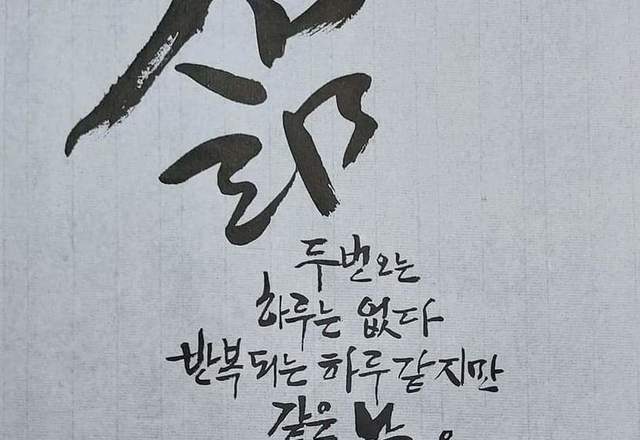 삶
두번오는
하루는 없다
반복되는 하루같지만
같은